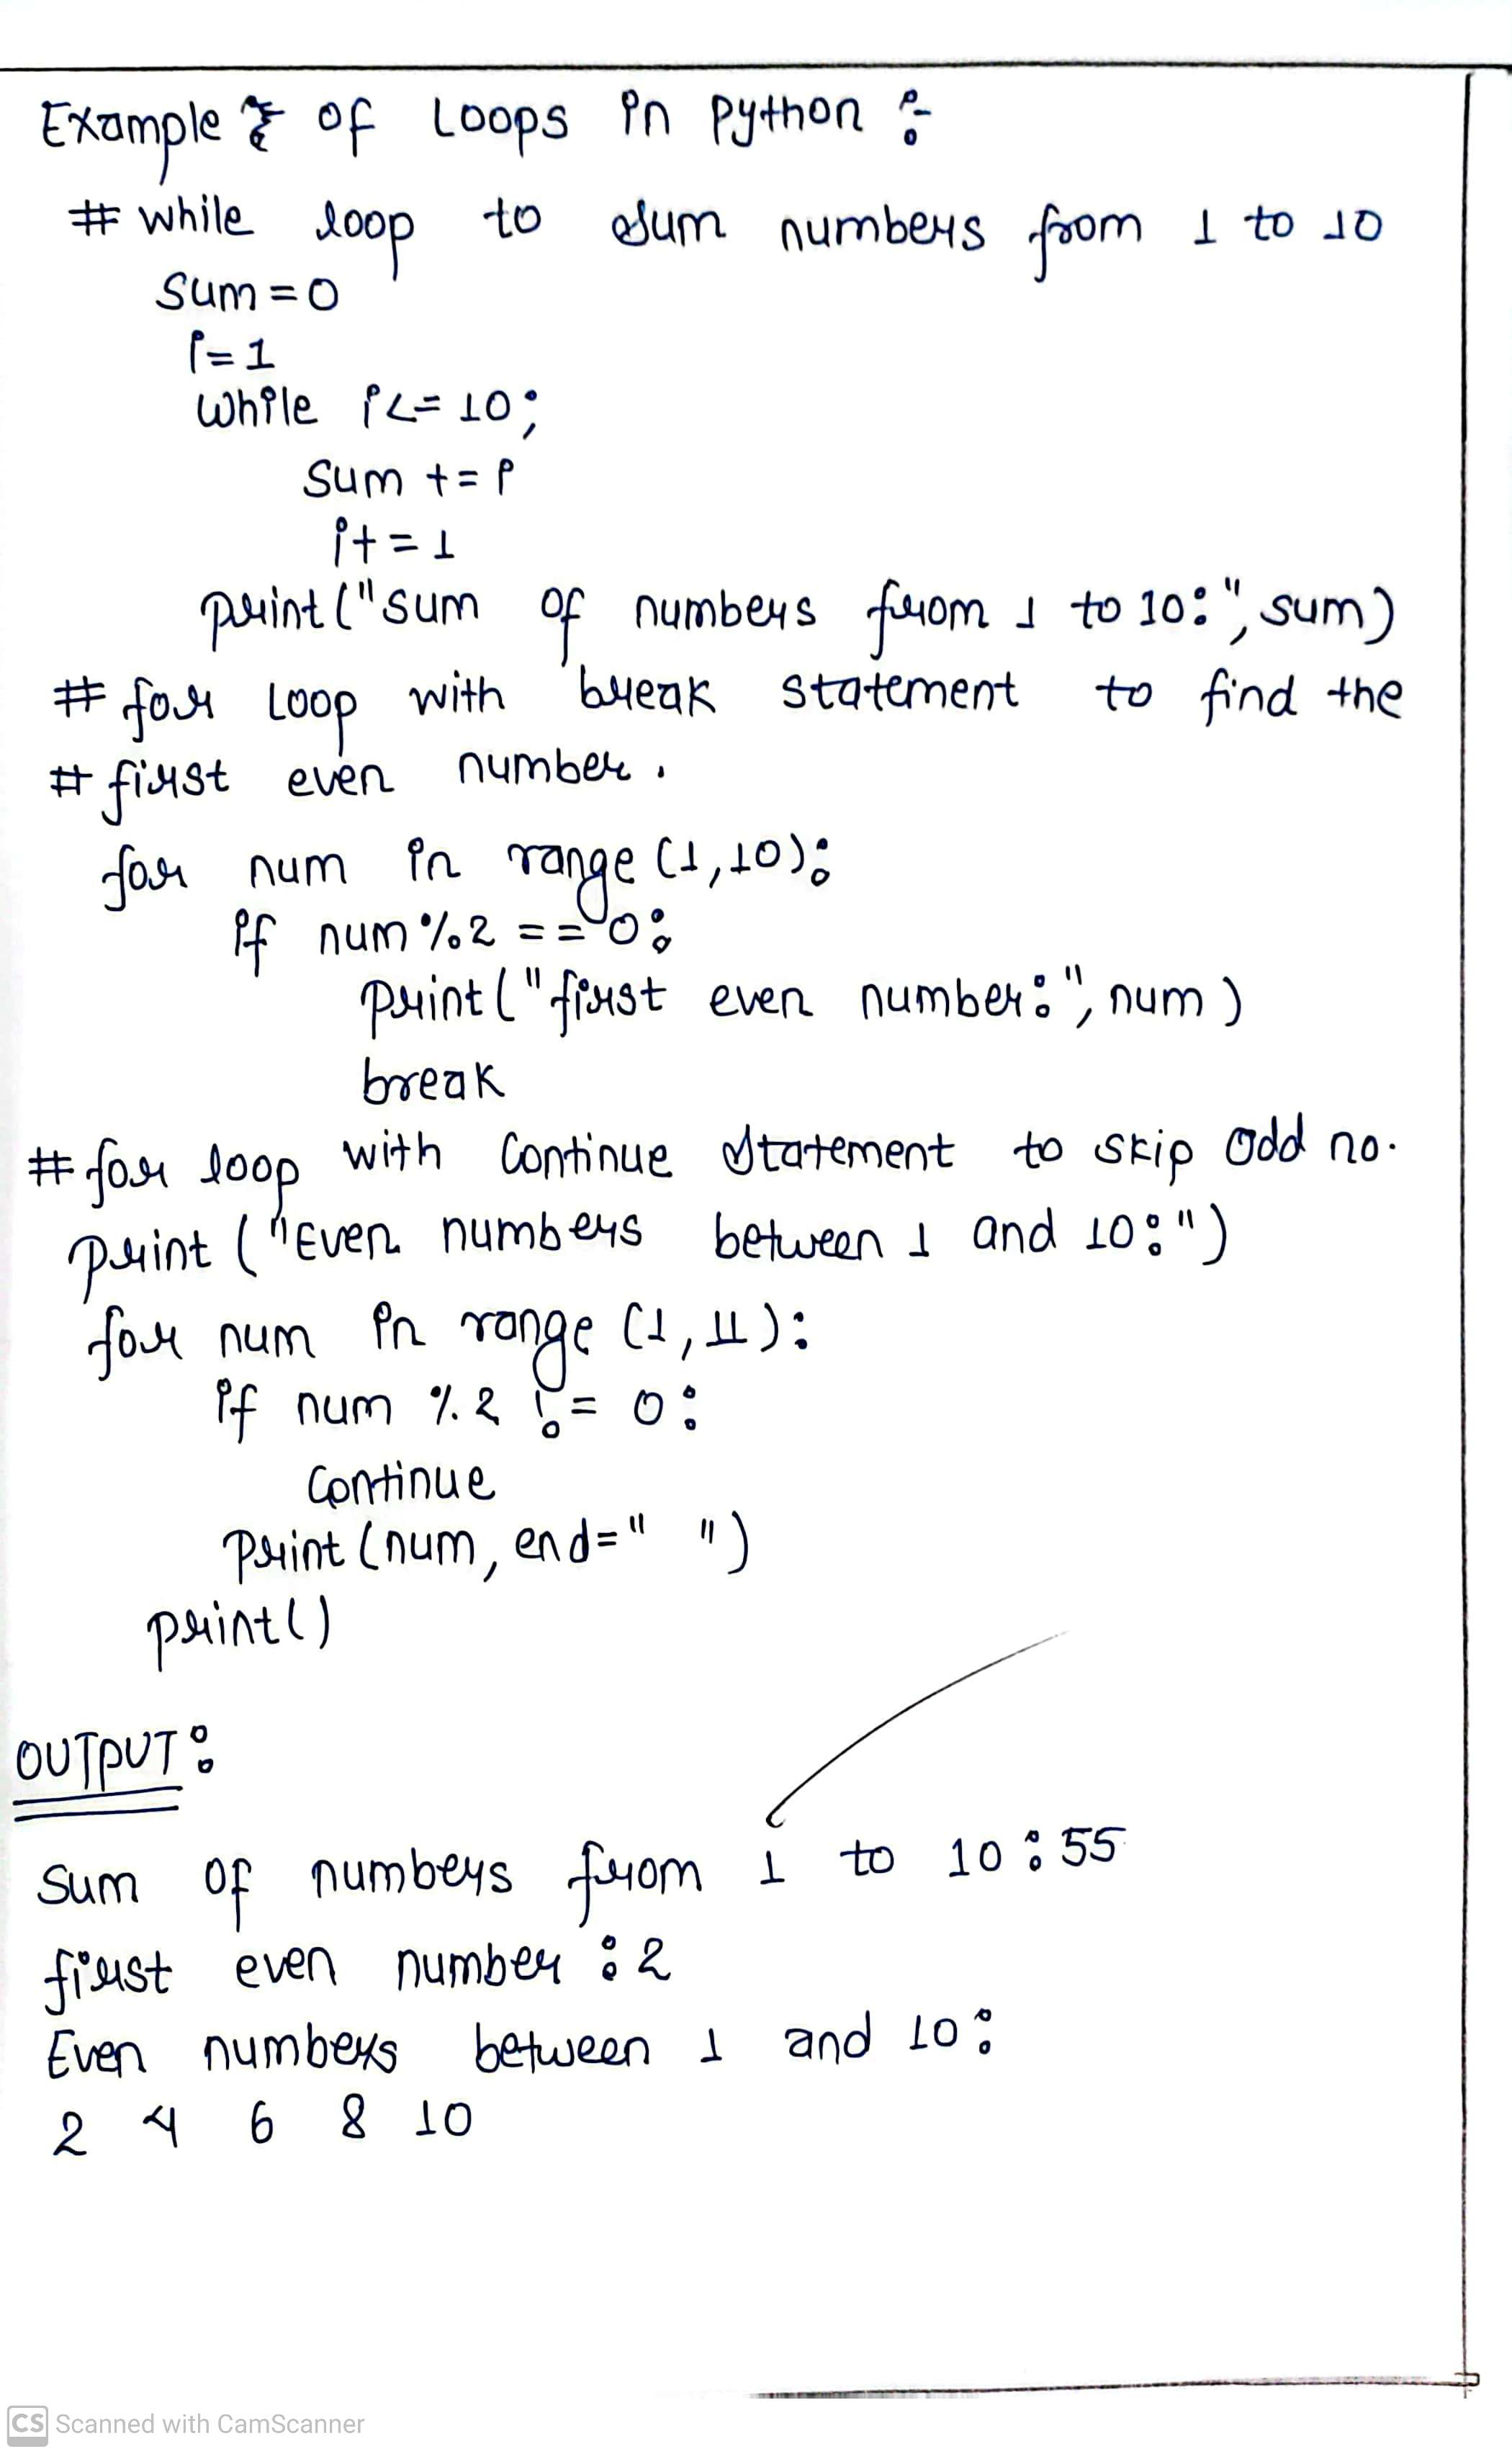 Example of Loops in Python :-
# while loop to sum numbers from 1 to 10
sum = 0
i = 1
while i <= 10;
sum += i
i += 1
print ("sum of numbers from 1 to 10:", sum)
# for Loop with break statement to find the
# first even number.
for num in range (1,10):
if num % 2 == 0:
print ("first even number:", num)
break
# for loop with Continue Statement to skip odd no.
print ("Even numbers between 1 and 10:")
for num in range (1, 11):
if num % 2 != 0:
Continue
print (num, end=" ")
print()
OUTPUT:
Sum of numbers from 1 to 10 : 55
first even number : 2
Even numbers between 1 and 10:
2 4 6 8 10
CS Scanned with CamScanner